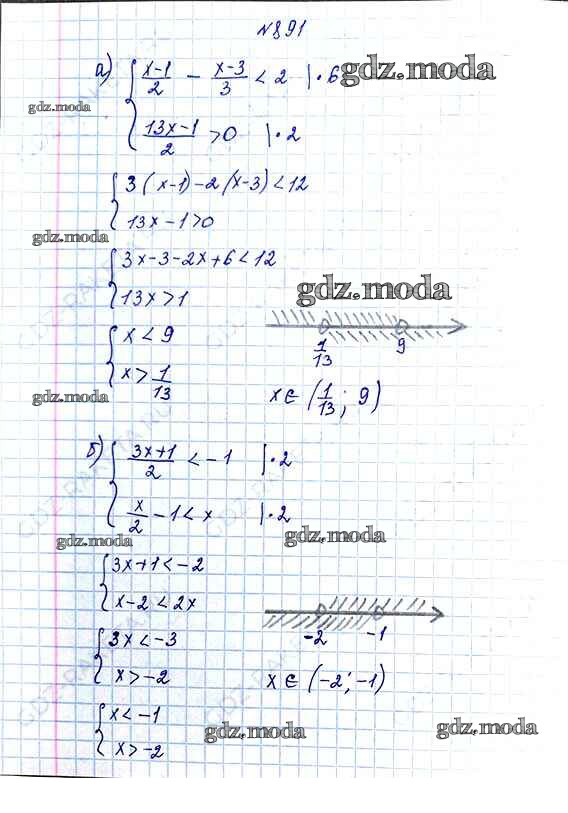 №891
а) { (x-1)/2 - (x-3)/3 < 2 |·6
gdz.moda
gdz.moda
(13x-1)/2 > 0 |·2
{ 3(x-1)-2(x-3)<12
13x-1>0
gdz.moda
{ 3x-3-2x+6<12
13x>1
gdz.moda
{ x<9
x> 1/13
1/13 9
gdz.moda
x∈(1/13; 9)
б) { (3x+1)/2 < -1 |·2
x/2 - 1 < x |·2
gdz.moda
gdz.moda
{ 3x+1<-2
x-2<2x
-2 -1
{ 3x<-3
x>-2
x∈(-2;-1)
{ x<-1
x>-2
gdz.moda
gdz.moda